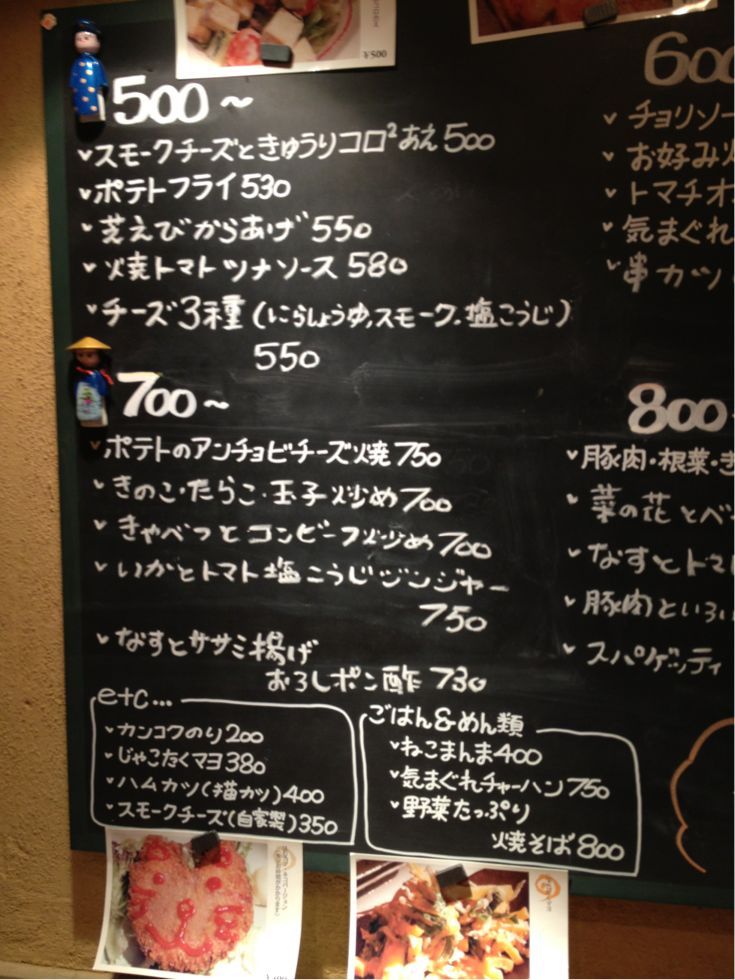 ¥500
500～
スモークチーズときゅうりコロ²あえ 500
ポテトフライ 530
芝えびからあげ 550
焼トマトツナソース 580
チーズ3種（にらしょうゆ,スモーク,塩こうじ）
550
700～
ポテトのアンチョビチーズ焼 750
きのこ・たらこ・玉子炒め 700
きゃべつとコンビーフ炒め 700
いかとトマト塩こうじジンジャー
750
なすとササミ揚げ
おろしポン酢 730
etc...
カンコクのり 200
じゃこたくマヨ 380
ハムカツ（猫カツ）400
スモークチーズ（自家製）350
ごはん&めん類
ねこまんま 400
気まぐれチャーハン 750
野菜たっぷり
焼そば 800
600
チョリソー
お好み
トマチオ
気まぐれ
串カツ
800
豚肉・根菜・き
菜の花とベー
なすとトマ
豚肉といろい
スパゲッティ